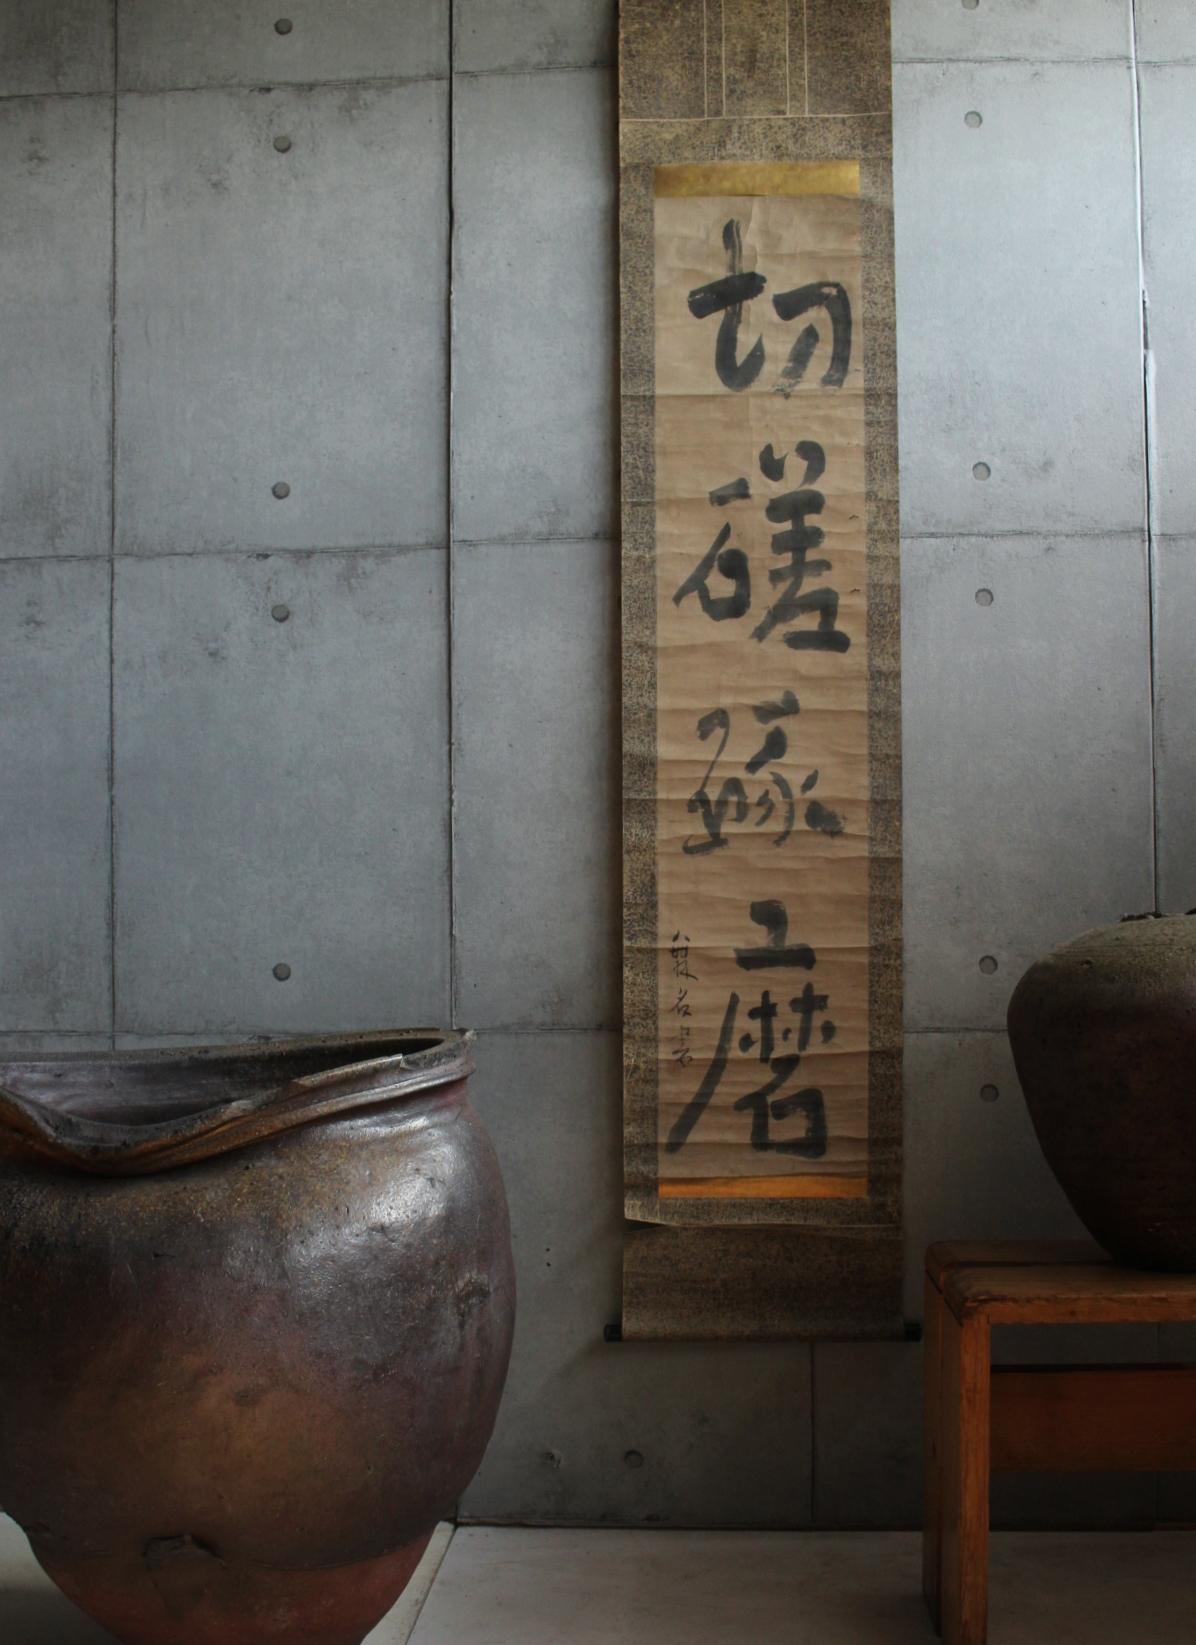 切磋琢磨